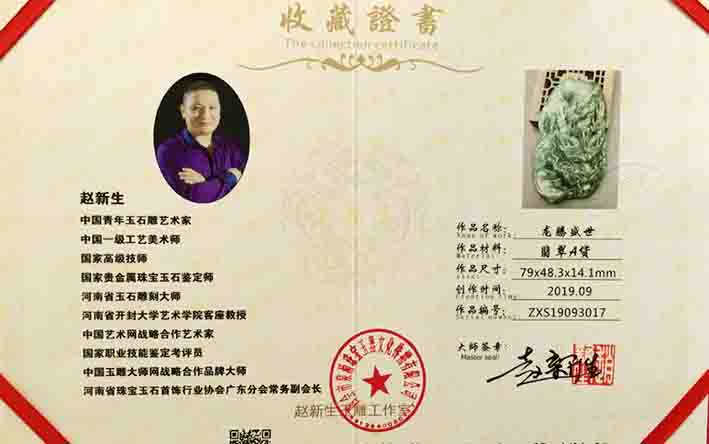 收藏證書
The collection certificate
赵新生
中国青年玉石雕艺术家
中国一级工艺美术师
国家高级技师
国家贵金属珠宝玉石鉴定师
河南省玉石雕刻大师
河南省开封大学艺术学院客座教授
中国艺术网战略合作艺术家
国家职业技能鉴定考评员
中国玉雕大师网战略合作品牌大师
河南省珠宝玉石首饰行业协会广东分会常务副会长
作品名称: 龙腾盛世
Name of work:
作品材料: 翡翠A货
Material:
作品尺寸: 79x48.3x14.1mm
创作时间: 2019.09
作品编号: ZXS19093017
大师签章:
Master seal:
赵新生玉雕工作室